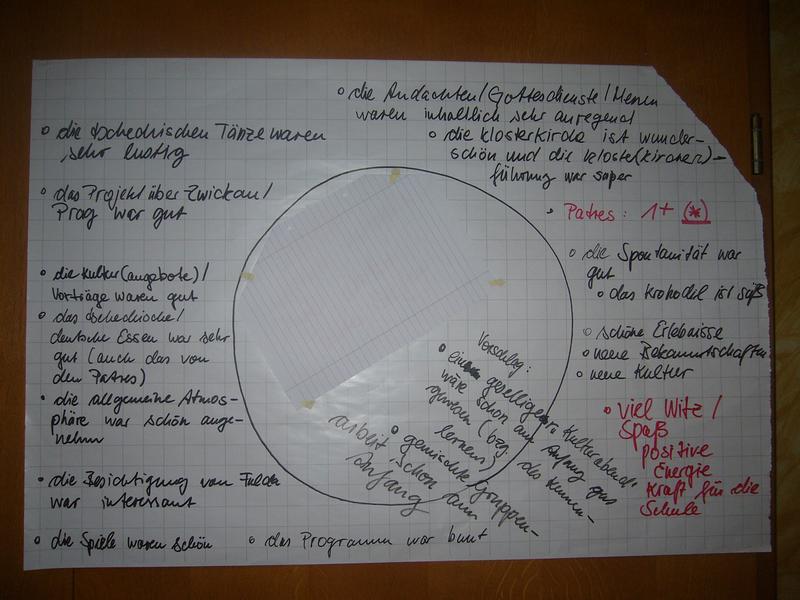 • die Andachten/Gottesdienste/Messen
waren inhaltlich sehr anregend
• die Klosterkirche ist wunder-
schön und die Kloster(kirchen)-
führung war super
• die tschechischen Tänze waren
sehr lustig
• das Projekt über Zwickau/
Prag war gut
• die Kultur(angebote)/
Vorträge waren gut
• das tschechische/
deutsche Essen war sehr
gut (auch das von
den Patres)
• die allgemeine Atmos-
phäre war schön ange-
nehm
• die Besichtigung von Fulda
war interessant
• die Spiele waren schön
• das Programm war bunt
• Patres: 1+ (*)
• die Spontanität war
gut
• das Krokodil ist süß
• schöne Erlebnisse
• neue Bekanntschaften
• neue Kultur
• viel Witz/
Spaß
positive
Energie
Kraft für die
Schule
Vorschlag:
• ein geselliger Kulturabend
wäre schon am Anfang gut
gewesen (bzg. des Kennen-
lernens)
• gemischte Gruppen-
arbeit schon am
Anfang